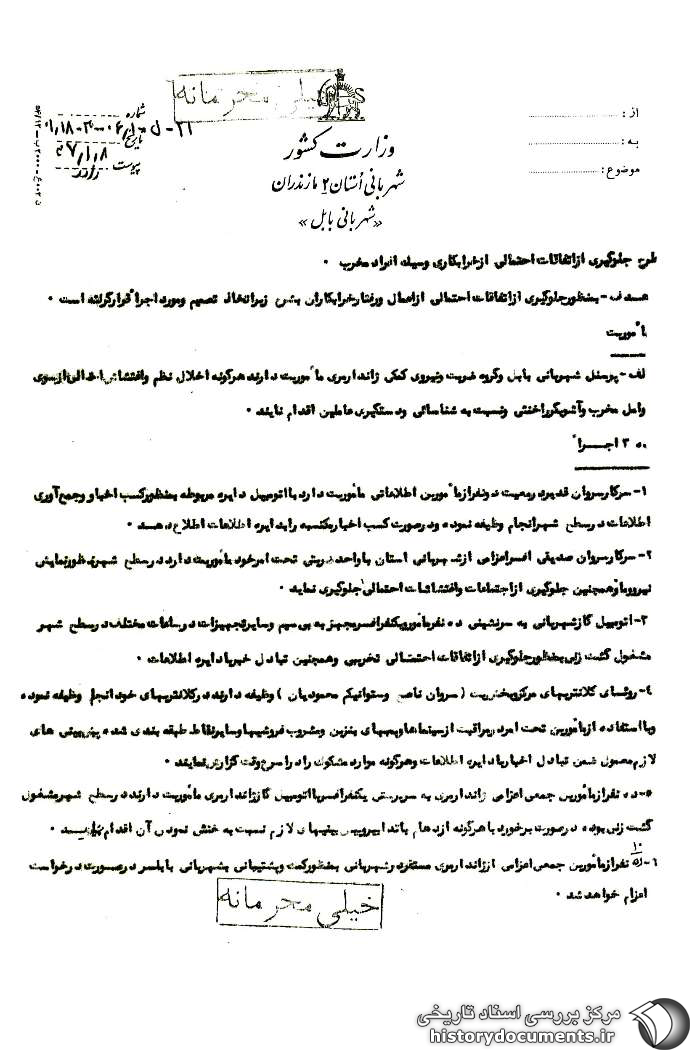 خیلی محرمانه
شماره
تاریخ
۵۷/۱/۸
پیوست دارد
از :
به :
موضوع :
وزارت کشور
شهربانی استان ۲ مازندران
«شهربانی بابل»
طرح جلوگیری ازاتفاقات احتمالی ازخرابکاری وسیله افراد مخرب ۰
هدف - بمنظورجلوگیری ازاتفاقات احتمالی ازاعمال ورفتارخرابکاران بشرح زیراتخاذ تصمیم ومورد اجرا قرارگرفته است ۰
مأموریت
لف- پرسنل شهربانی بابل وگروه ضربت ونیروی کمکی ژاندارمری مأموریت دارند هرگونه اخلال نظم واغتشاش احتمالی ازسوی
وامل مخرب وآشوبگرراخنثی ونسبت به شناسائی ودستگیری عاملین اقدام نمایند ۰
۳ اجراً
۱- سرکارسروان قدیرد رمعیت دونفرازمأمورین اطلاعاتی مأموریت دارد بااتومبیل دایره مربوطه بمنظورکسب اخبار وجمع آوری
اطلاعات درسطح شهرانجام وظیفه نموده ودرصورت کسب اخبارمکتسبه رابدایره اطلاعات اطلاع دهد ۰
۲- سرکارسروان صدیقی افسراعزامی ازشهربانی استان باواحد ضربتی تحت امرخود مأموریت دارد درسطح شهربمنظورنمایش
نیرو وهمچنین جلوگیری ازاجتماعات واغتشاشات احتمالی جلوگیری نماید ۰
۳- اتومبیل گازشهربانی به سرنشینی ده نفرمأموریکنفرافسرمجهز به بی سیم وسایرتجهیزات درساعات مختلف درسطح شهر
مشغول گشت زنی بمنظورجلوگیری ازاتفاقات احتمالی تخریبی وهمچنین تبادل خبربادایره اطلاعات ۰
۴- روسای کلانتریهای مرکزوبخش (سروان ناصح وستوانیکم محمودیان) وظیفه دارند درکلانتریهای خود انجام وظیفه نموده
وبااستفاده ازمأمورین تحت امر درمراقبت ازسینماهاوپمپهای بنزین ومشروب فروشیهاوسایرنقاط طبقه بندی شده پیش بینی های
لازم معمول ضمن تبادل اخباربادایره اطلاعات وهرگونه موارد مشکوک رادراسرع وقت گزارش نمایند ۰
۵- ده نفرازمأمورین جمعی اعزامی ژاندارمری به سرپرستی یکنفرافسربااتومبیل گازژاندارمری مأموریت دارند درسطح شهرمشغول
گشت زنی بوده درصورت برخورد باهرگونه ازدحام باتدابیروپیش بینیهای لازم نسبت به خنثی نمودن آن اقدام نمایند ۰
۶- ۱۰ نفرازمأمورین جمعی اعزامی ازژاندارمری مستقردرشهربانی بمنظورکمک وپشتیبانی بشهربانی بابلسر درصورت درخواست
اعزام خواهد شد ۰
خیلی محرمانه
مرکز بررسی اسناد تاریخی
historydocuments.ir